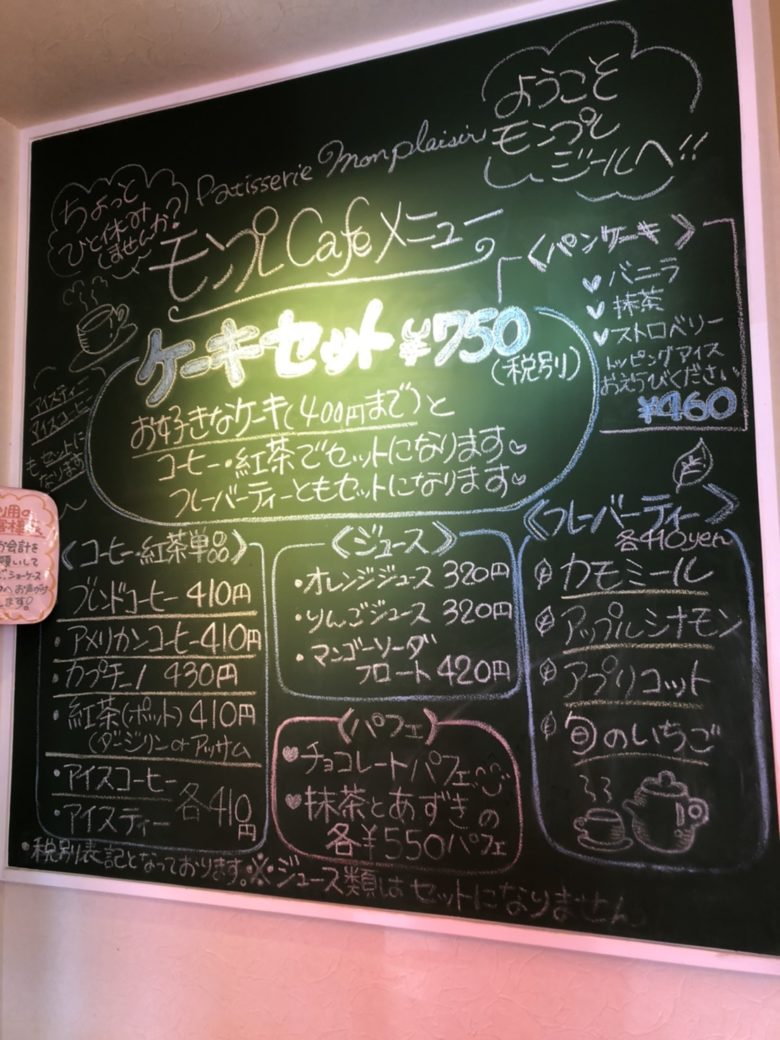 ようこそ
モンプレ
ジールへ!!
Patisserie Monplaisir
ちょっと
ひと休み
しませんか?
モンプレCafeメニュー
ケーキセット ¥750
(税別)
お好きなケーキ(400円まで)と
コーヒー・紅茶でセットになります
フレーバーティーともセットになります
アイスティー
アイスコーヒー
もセットに
なります
《パンケーキ》
バニラ
抹茶
ストロベリー
トッピングアイス
おえらびください
¥460
《コーヒー・紅茶単品》
ブレンドコーヒー 410円
・アメリカンコーヒー 410円
・カプチーノ 430円
・紅茶(ポット) 410円
(ダージリン or アッサム
・アイスコーヒー
・アイスティー
各410円
《ジュース》
・オレンジジュース 320円
・りんごジュース 320円
・マンゴーソーダ
フロート 420円
《パフェ》
チョコレートパフェ
抹茶とあずきの
パフェ
各¥550
《フレーバーティー》
各410yen
カモミール
アップルシナモン
アプリコット
旬のいちご
・税別表記となっております。※ジュース類はセットになりません
お会計を
願いして
ショーケース
お声がけ
します。